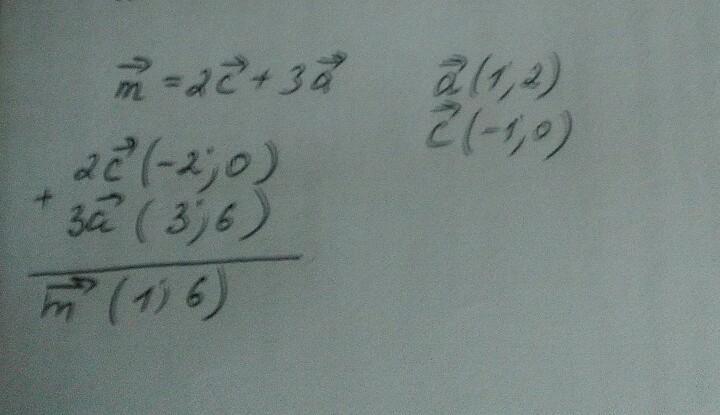 m⃗ = 2c⃗ + 3a⃗
a⃗ (1; 2)
c⃗ (-1; 0)
2c⃗ (-2; 0)
+
3a⃗ (3; 6)
m⃗ (1; 6)